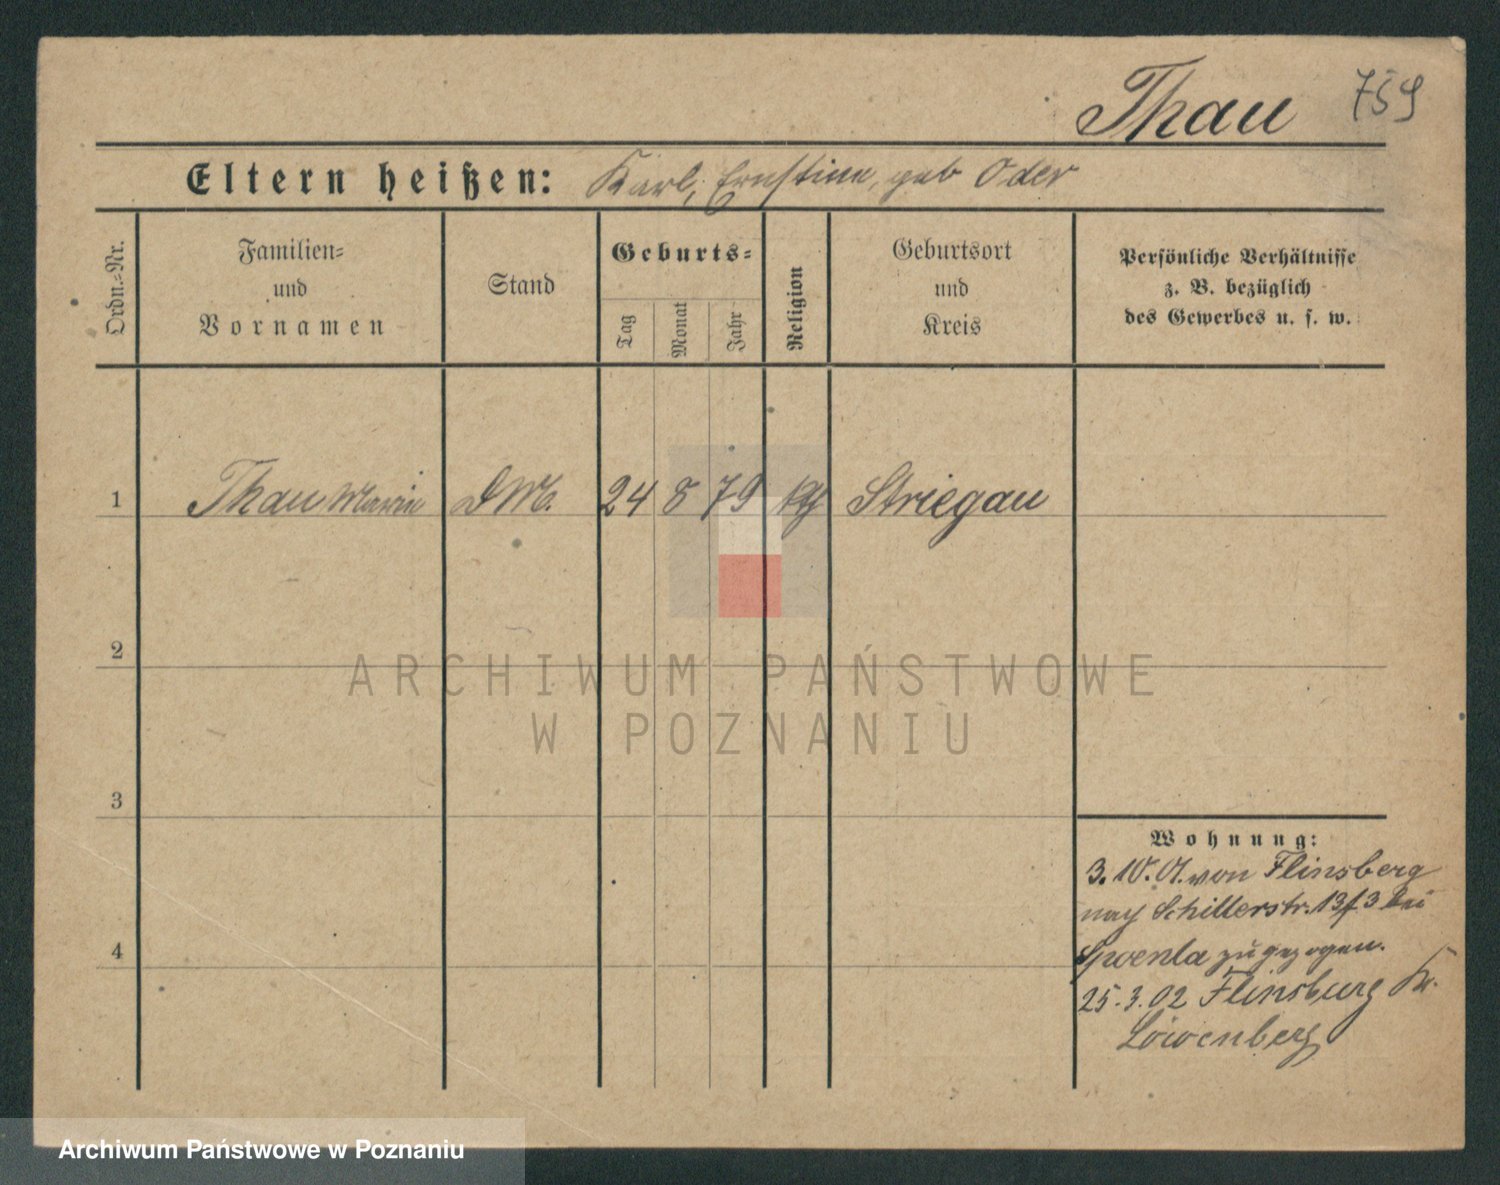 Thau 759
Eltern heißen: Karl, Ernstine, geb Oder
Ordn.-Nr.
Familien-
und
Vornamen
Stand
Geburts-
Tag
Monat
Jahr
Religion
Geburtsort
und
Kreis
Persönliche Verhältnisse
z. B. bezüglich
des Gewerbes u. s. w.
1 Thau Marie DM. 24 8 79 Striegau
2
3
4
Wohnung:
3. 10. 01. von Flinsberg
nach Schillerstr. 13 bei
zugezogen.
25.3.02 Flinsburg Kr.
Löwenberg
ARCHIWUM PAŃSTWOWE
W POZNANIU
Archiwum Państwowe w Poznaniu